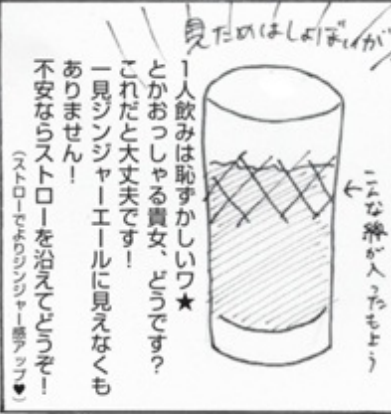 見ためはしょぼいが
こんな線が入ったもよう
1人飲みは恥ずかしいワ★
とかおっしゃる貴女、どうです?
これだと大丈夫です!
一見ジンジャーエールに見えなくも
ありません!
不安ならストローを沿えてどうぞ!
(ストローでよりジンジャー感アップ♥)